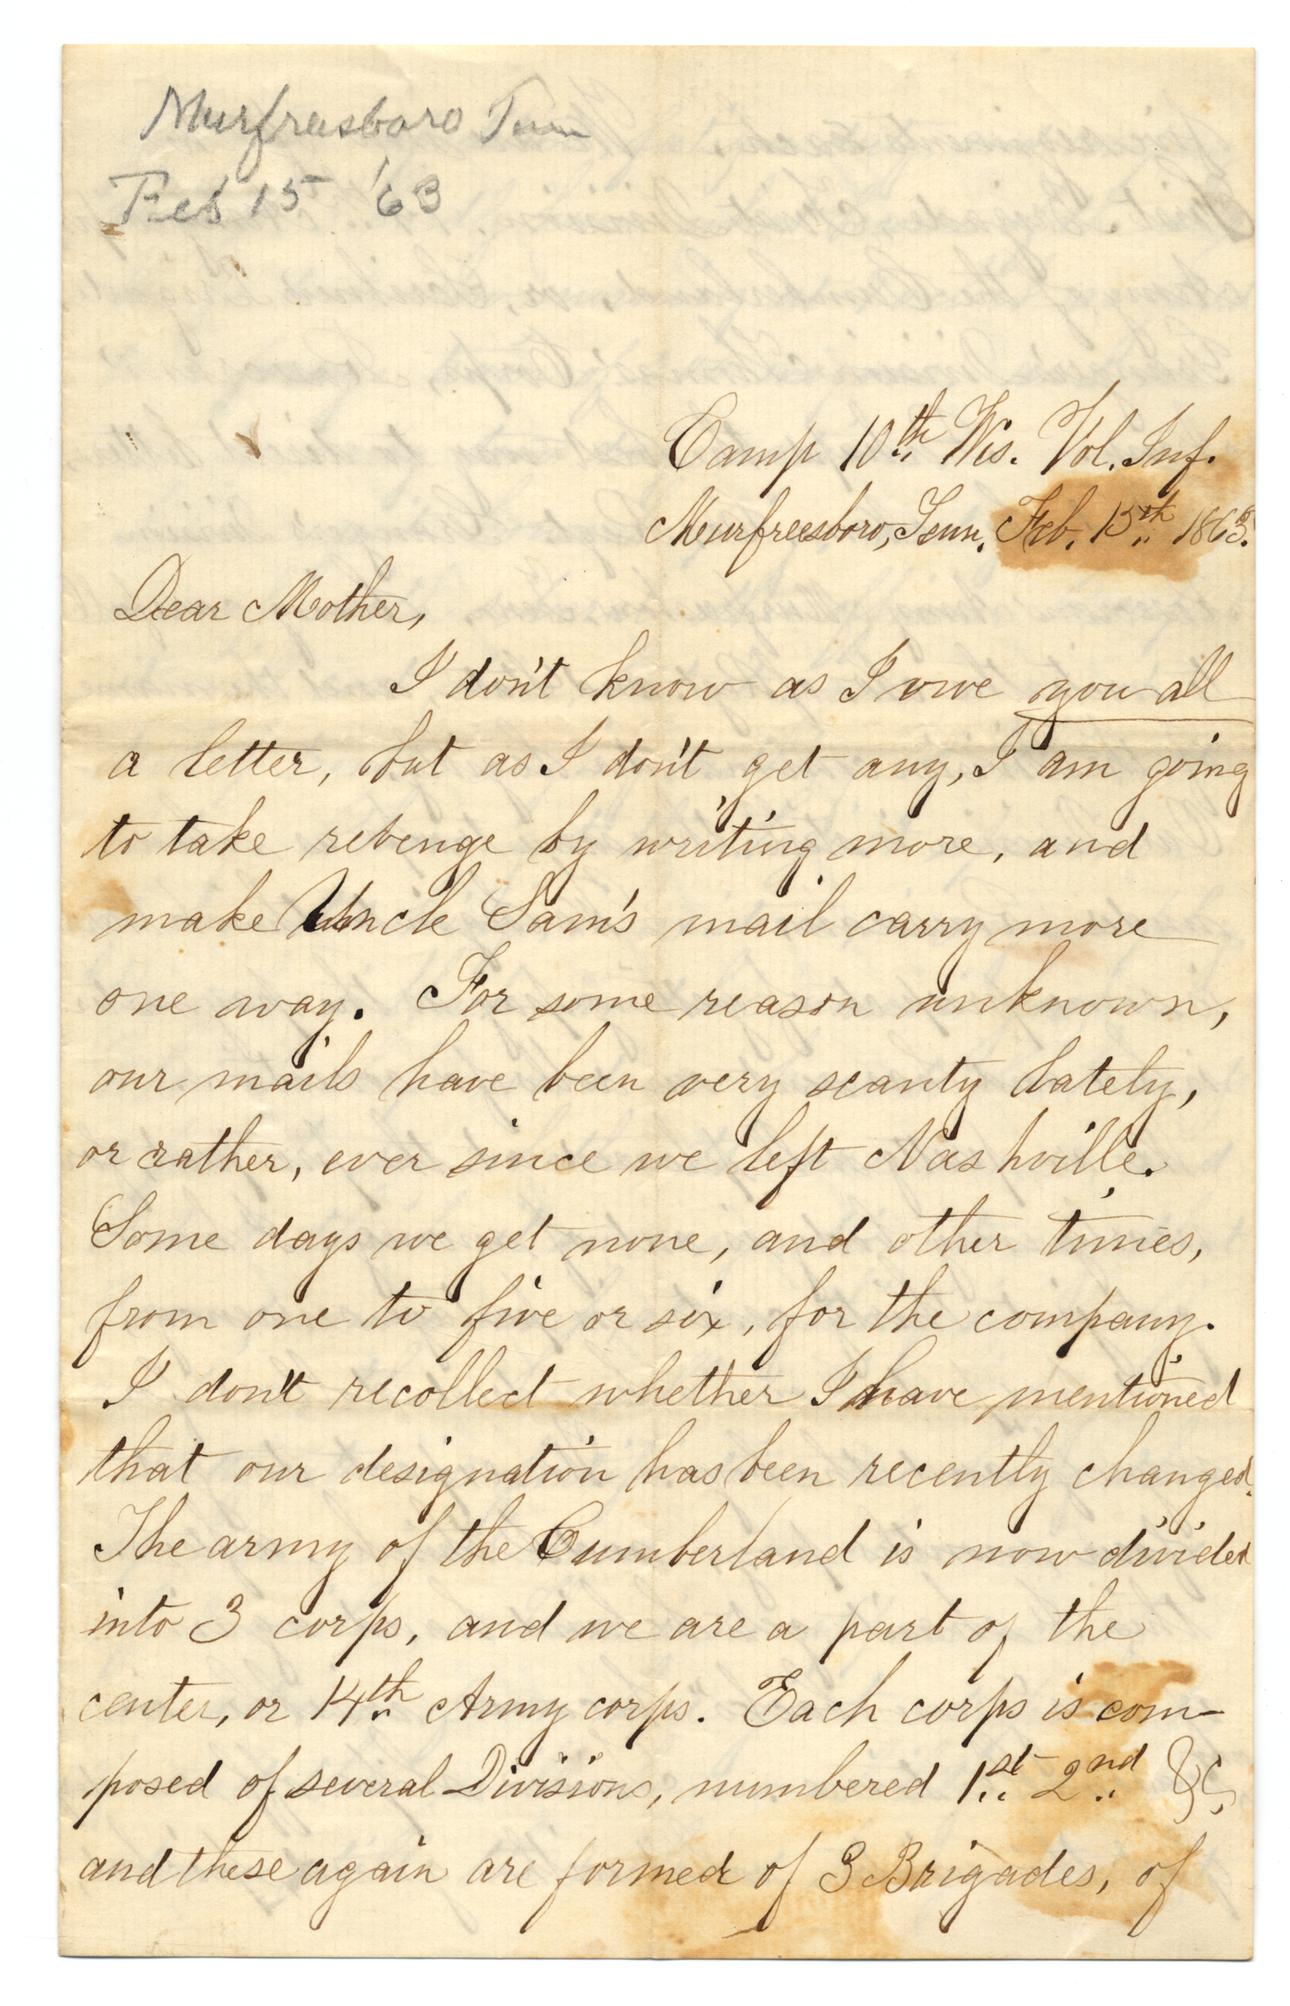 Murfreesboro Tenn
Feb 15 '63
Camp 10th Wis. Vol. Inf.
Murfreesboro, Tenn. Feb. 15th 1863.
Dear Mother,
I don't know as I owe you all
a letter, but as I don't get any, I am going
to take revenge by writing more, and
make Uncle Sam's mail carry more
one way. For some reason unknown,
our mails have been very scanty lately,
or rather, ever since we left Nashville.
Some days we get none, and other times,
from one to five or six, for the company.
I don't recollect whether I have mentioned
that our designation has been recently changed.
The army of the Cumberland is now divided
into 3 corps, and we are a part of the
center, or 14th Army corps. Each corps is com-
posed of several Divisions, numbered 1st 2nd &c,
and these again are formed of 3 Brigades, of